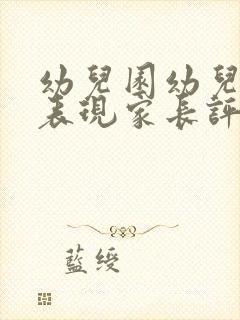 幼兒園幼兒
表現家長評
藍綬